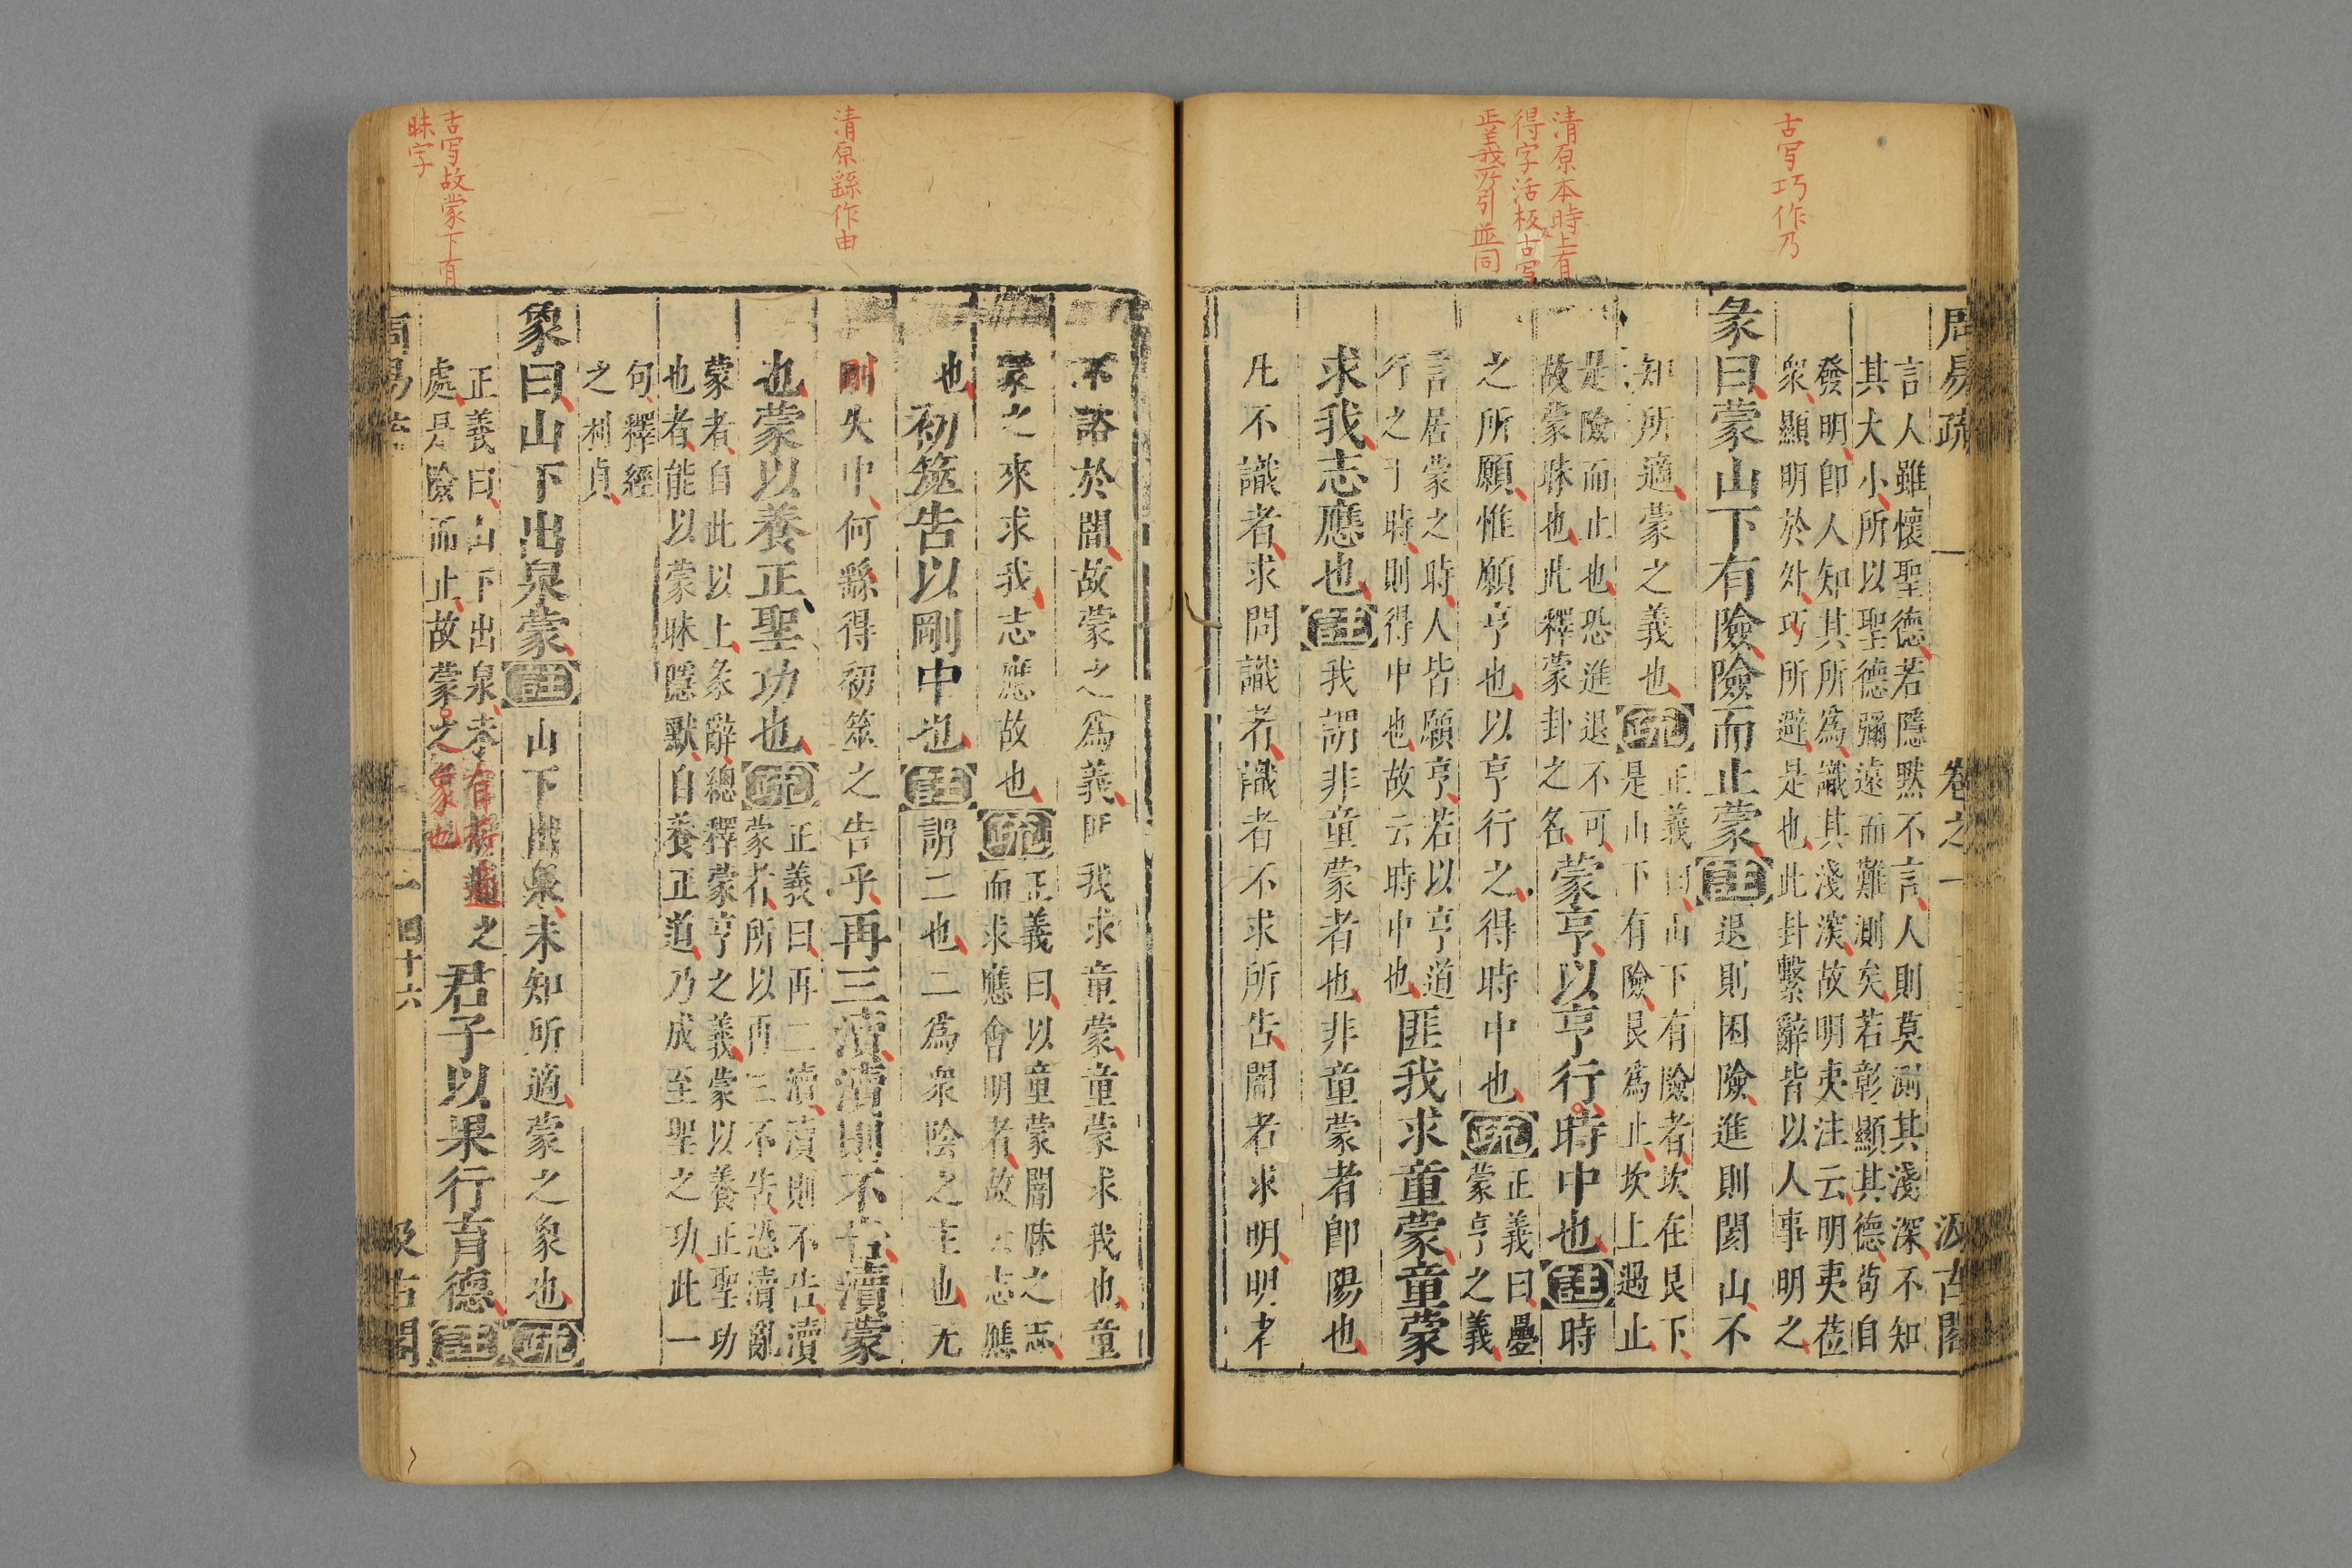 古写巧作乃
清原本時上有
得字活板古写
正義所引並同
周易疏 卷之一 汲古閣
言人雖懷聖德若隱默不言人則莫測其淺深不知
其大小所以聖德彌遠而難測矣若彰顯其德苟自
發明卽人知其所為識其淺深故明夷注云明夷莅
衆顯明於外巧所避是也此卦繫辭皆以人事明之
彖曰蒙山下有險險而止蒙注退則困險進則閡山不
知所適蒙之義也疏正義曰山下有險者坎在艮下
是山下有險艮為止坎上遇止
是險而止也恐進退不可
故蒙昧也此釋蒙卦之名蒙亨以亨行時中也注時
之所願惟願亨也以亨行之得時中也疏正義曰疊
蒙亨之義
言居蒙之時人皆願亨若以亨道
行之于時則得中也故云時中也匪我求童蒙童蒙
求我志應也注我謂非童蒙者也非童蒙者卽陽也
凡不識者求問識者識者不求所告闇者求明明者
清原繇作由
古写故蒙下有
昧字
不諮於闇故蒙之為義匪我求童蒙童蒙求我也童
蒙之來求我志應故也疏正義曰以童蒙闇昧之志
而求應會明者故云志應
也初筮告以剛中也注謂二也二為衆陰之主也无
剛失中何繇得初筮之告乎再三瀆瀆則不告瀆蒙
也蒙以養正聖功也疏正義曰再三瀆瀆則不告瀆
蒙者所以再三不告恐瀆亂
蒙者自此以上彖辭總釋蒙亨之義蒙以養正聖功
也者能以蒙昧隱默自養正道乃成至聖之功此一
句釋經
之利貞
象曰山下出泉蒙注山下出泉未知所適蒙之象也疏
正義曰山下出泉未有所適之
處是險而止故蒙之象也君子以果行育德注
周易疏 四十六 汲古閣